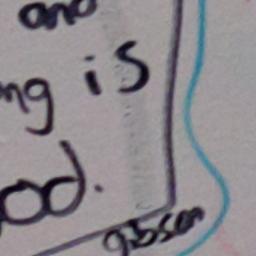 and
ng is
od.
gibson